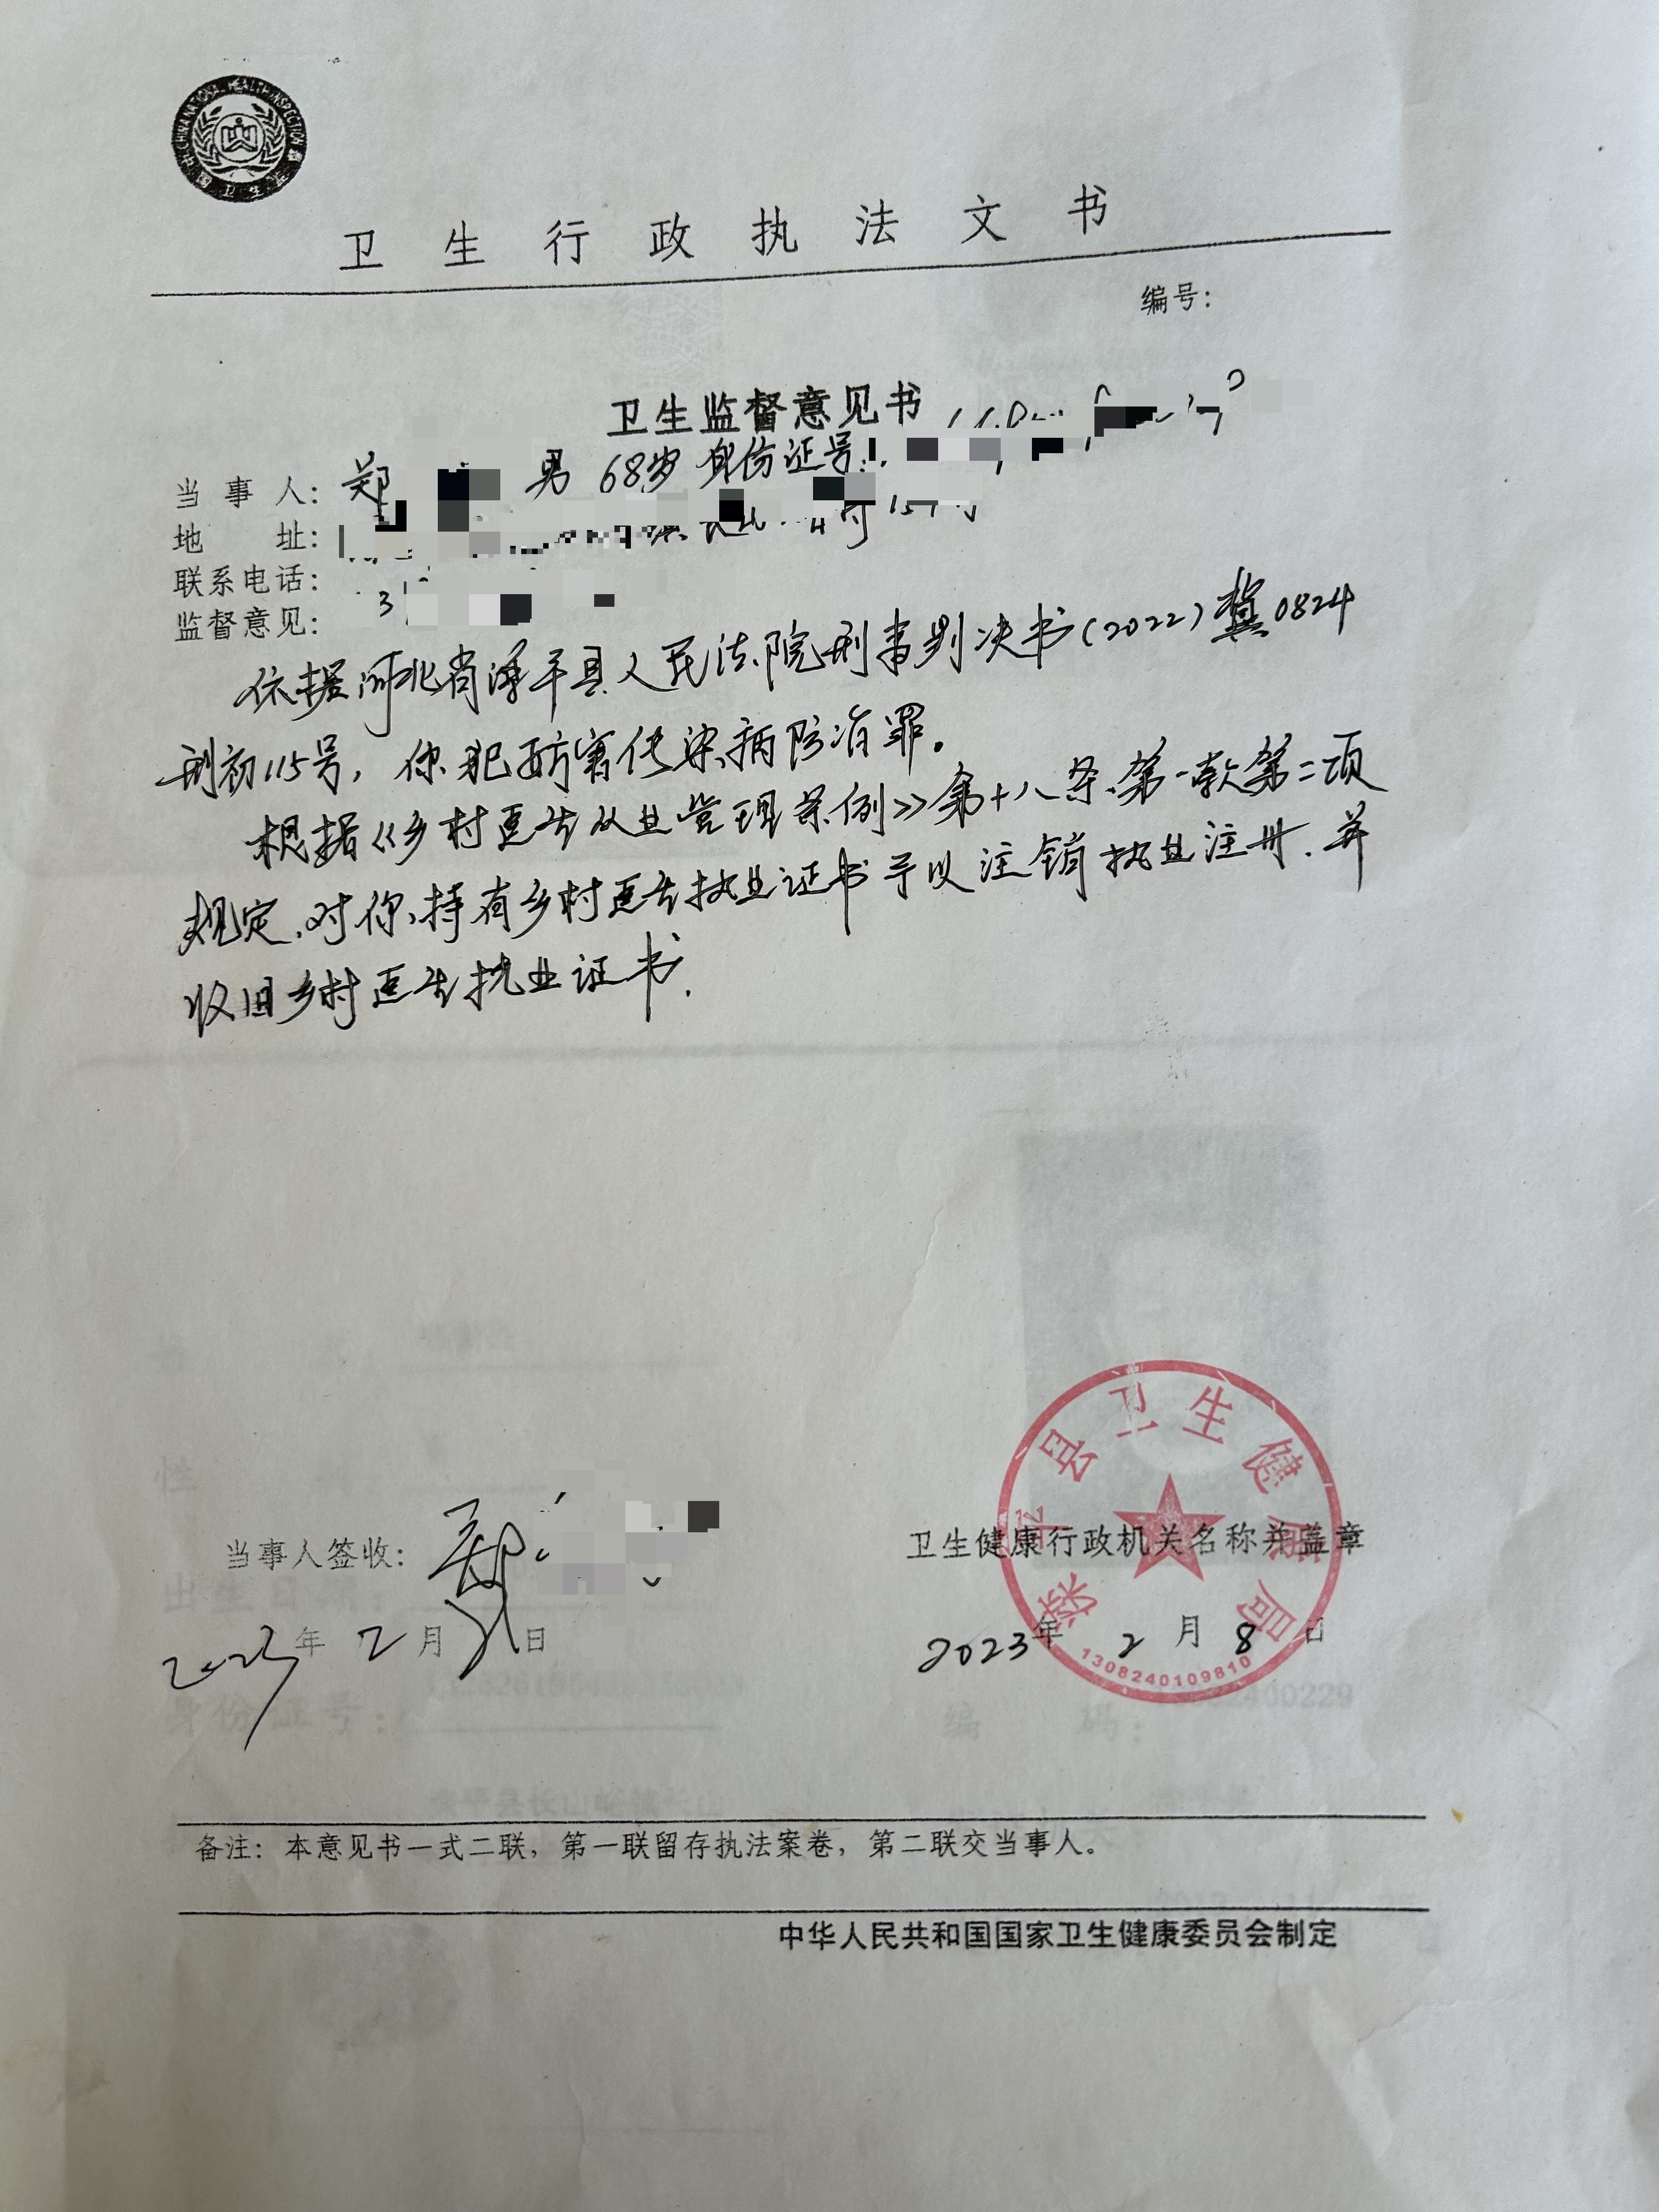 CHINA NATIONAL HEALTH INSPECTION
中国卫生监督
卫生行政执法文书
编号：
卫生监督意见书
当事人：郑 男 68岁 身份证号：
地址：
联系电话：
监督意见：
依据河北省滦平县人民法院刑事判决书（2022）冀0824
刑初115号，你犯妨害传染病防治罪。
根据《乡村医生从业管理条例》第十八条第一款第二项
规定，对你持有乡村医生执业证书予以注销执业注册，并
收回乡村医生执业证书．
滦平县卫生健康局
当事人签收：郑
卫生健康行政机关名称并盖章
2023年2月8日
2023年2月8日
1308240109810
出生日
身份证号：
编码：
备注：本意见书一式二联，第一联留存执法案卷，第二联交当事人。
中华人民共和国国家卫生健康委员会制定